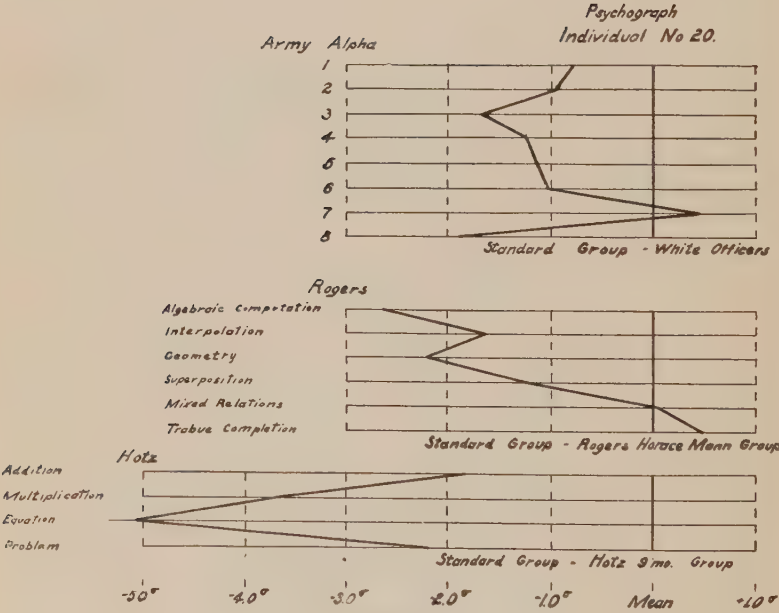 Psychograph
Individual No 20.
Army Alpha
1
2
3
4
5
6
7
8
Standard Group - White Officers
Rogers
Algebraic Computation
Interpolation
Geometry
Superposition
Mixed Relations
Trabue Completion
Standard Group - Rogers Horace Mann Group
Hotz
Addition
Multiplication
Equation
Problem
Standard Group - Hotz 9 mo. Group
-5.0σ -4.0σ -3.0σ -2.0σ -1.0σ Mean +1.0σ